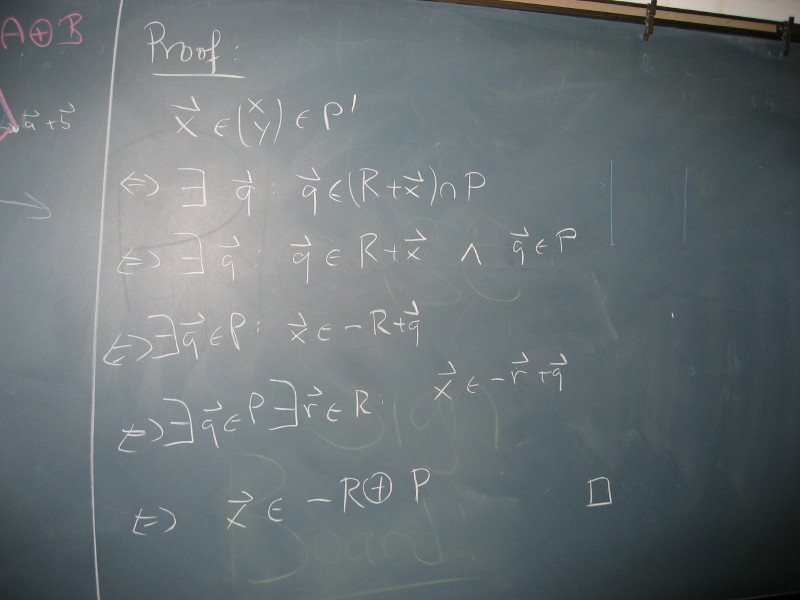 A⊕B
a⃗+b⃗
Proof:
x⃗ ∈ (x y) ∈ P'
⇔ ∃ q⃗ : q⃗ ∈ (R+x⃗) ∩ P
⇔ ∃ q⃗ : q⃗ ∈ R+x⃗ ∧ q⃗ ∈ P
⇔ ∃ q⃗ ∈ P : x⃗ ∈ -R+q⃗
⇔ ∃ q⃗ ∈ P ∃ r⃗ ∈ R : x⃗ ∈ -r⃗+q⃗
⇔ x⃗ ∈ -R ⊕ P □
Sign
Board